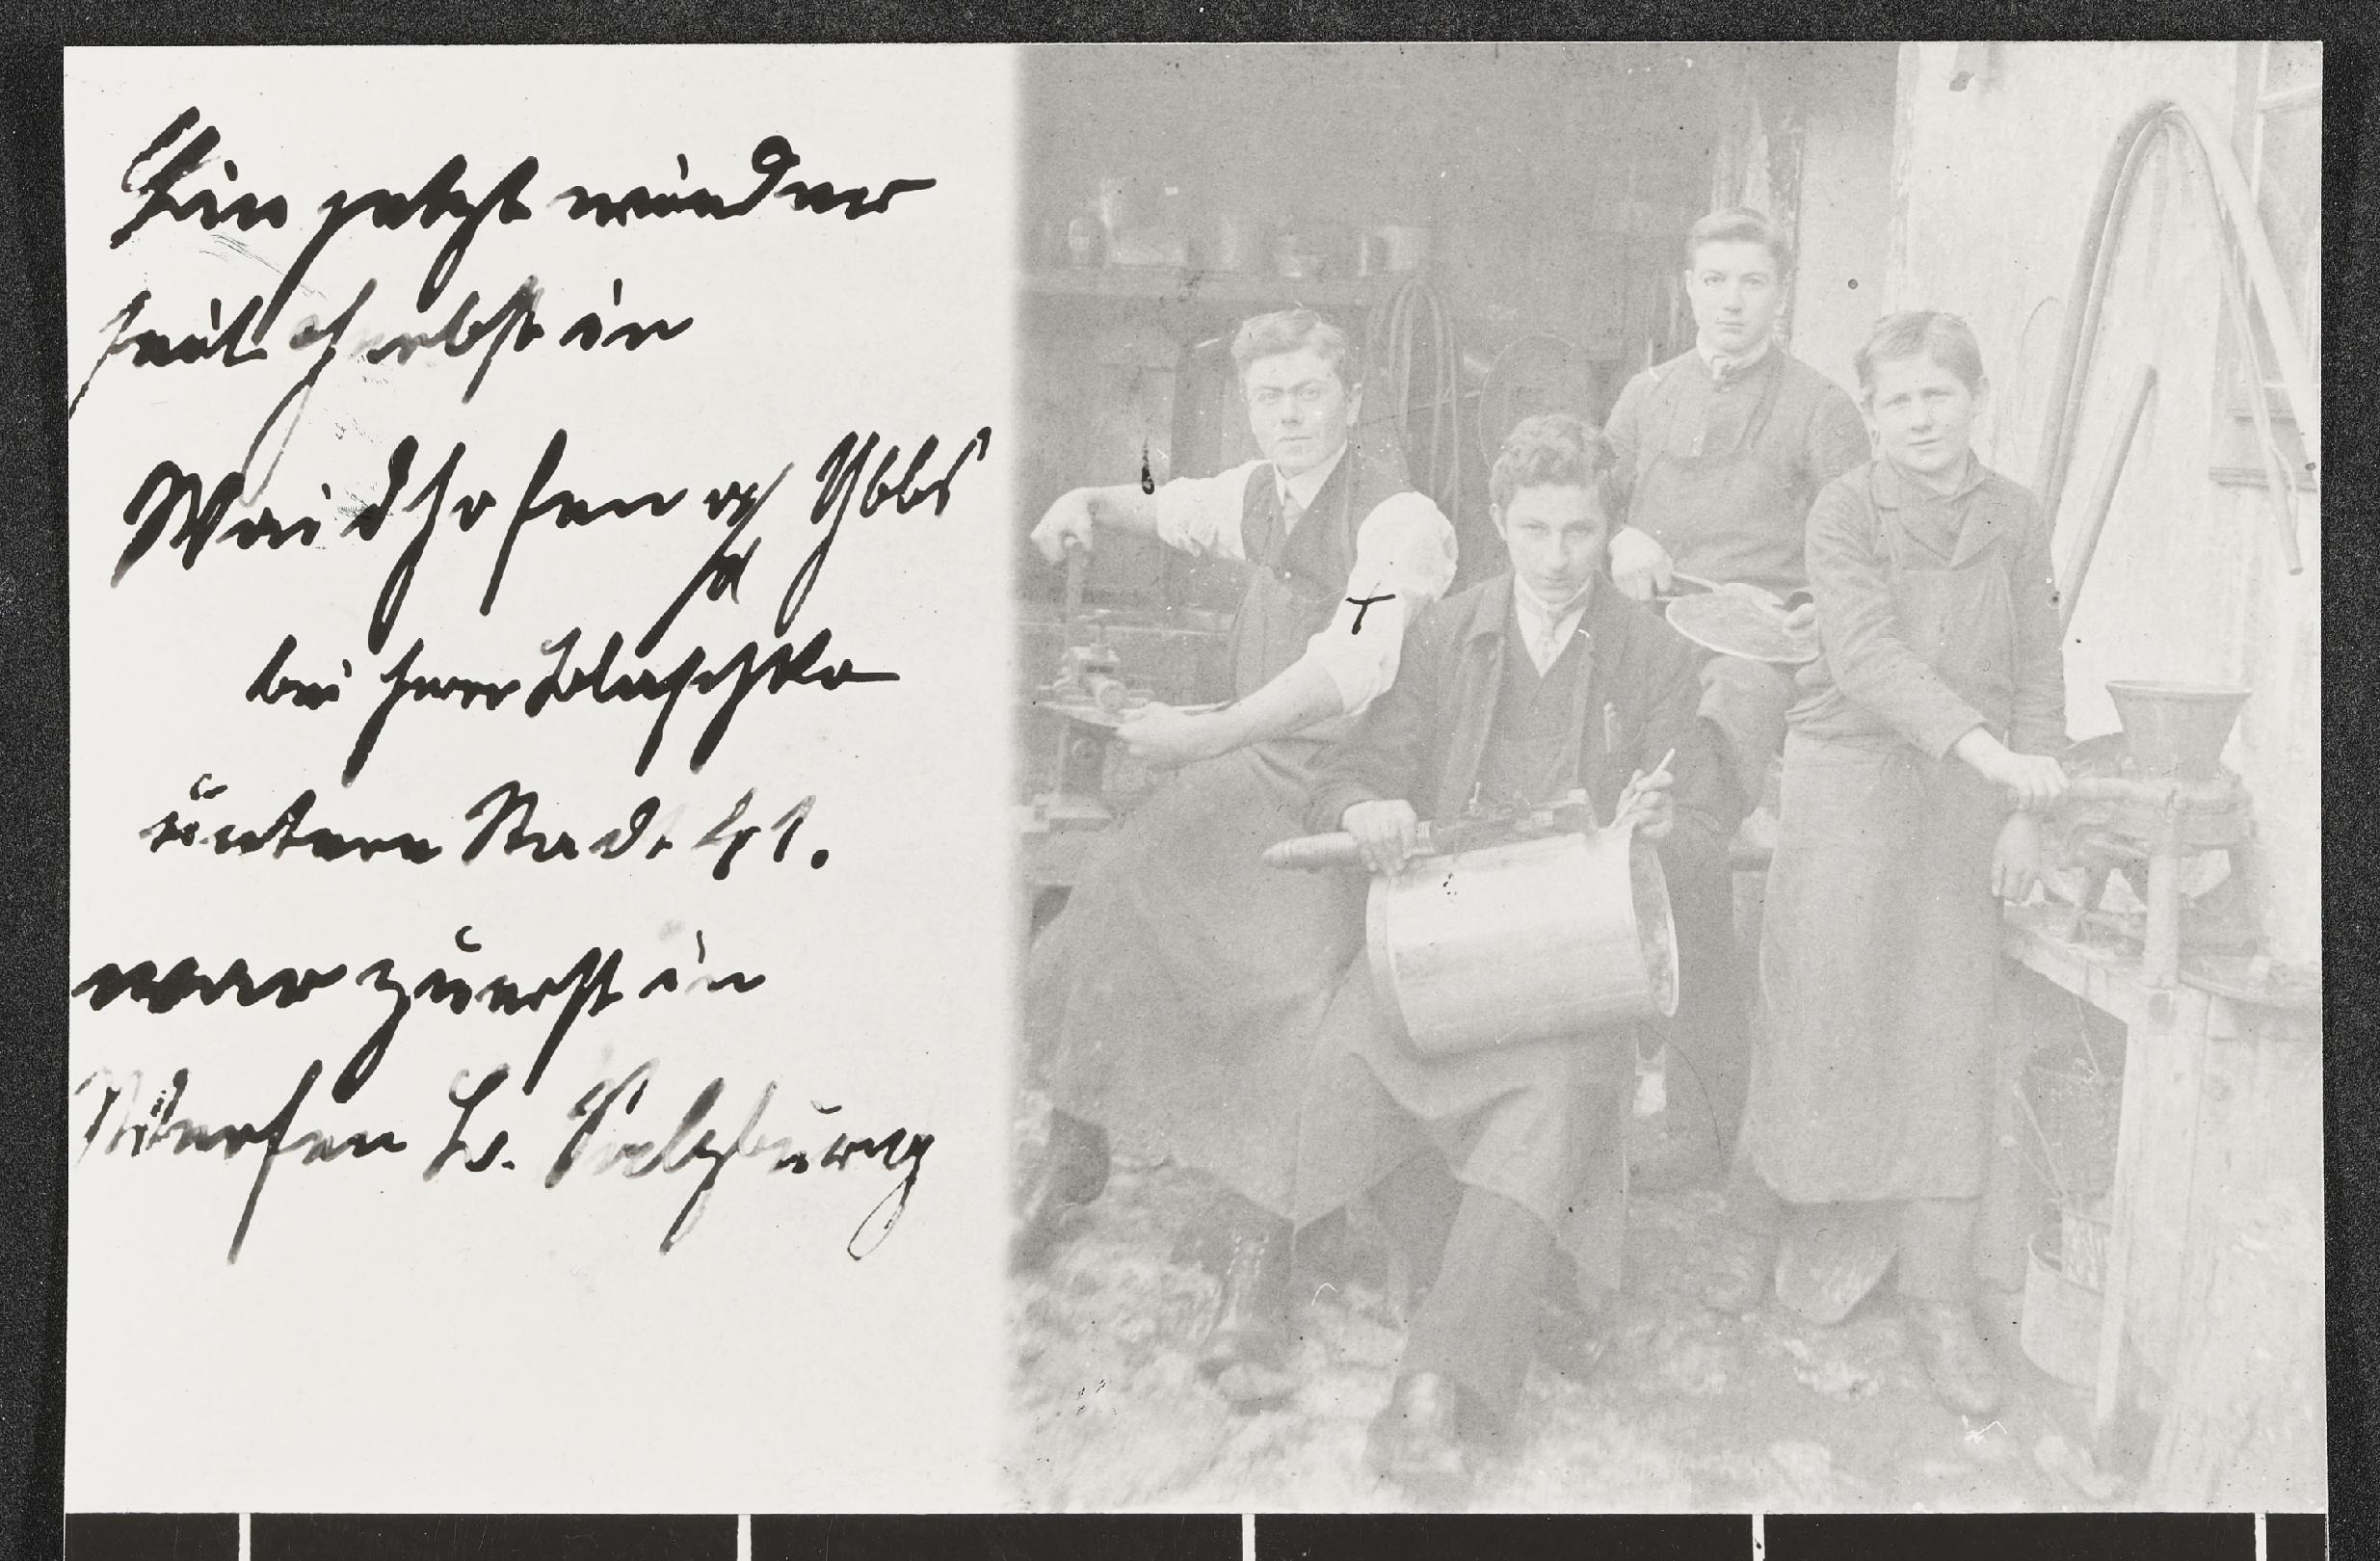 Bin jetzt wieder
seit Herbst in
Waidhofen a/ Ybbs
bei Herrn Blaschko
untere Stadt
war zuerst in
Werfen b. Salzburg